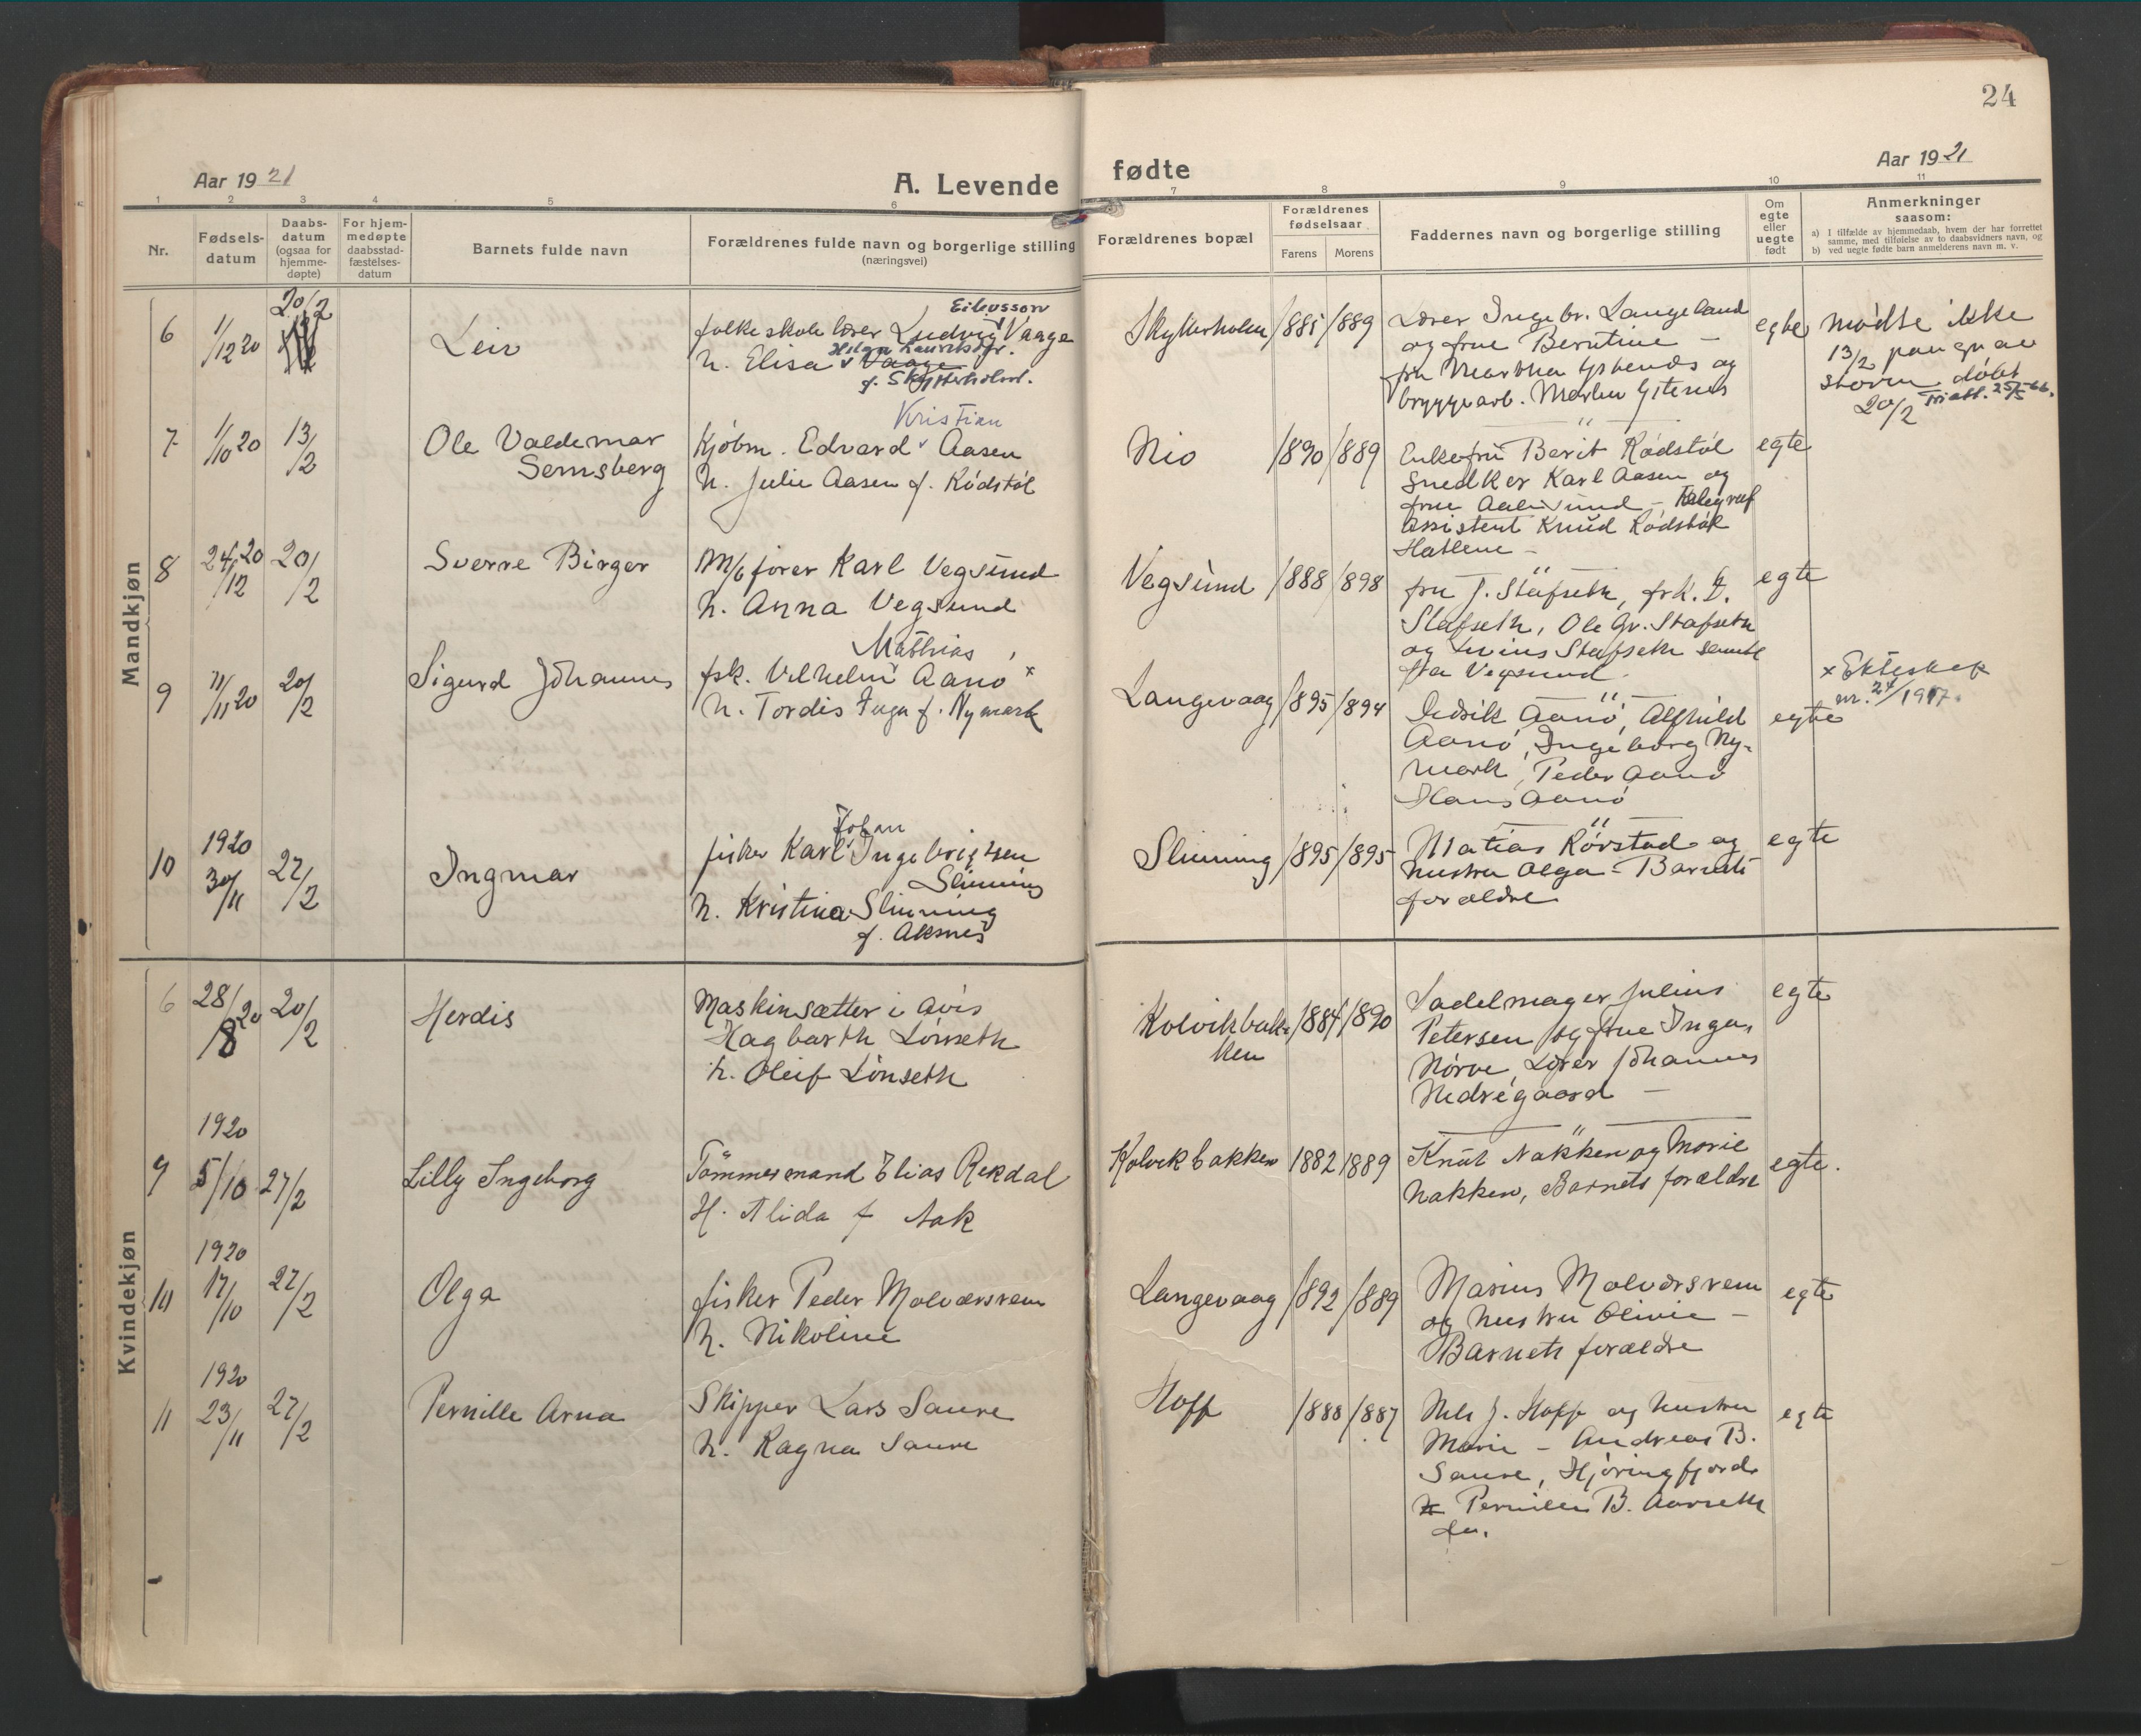 24
Aar 1921
A. Levende
fødte
Aar 1921
1 2 3 4 5 6 7 8 9 10 11
Nr.
Fødsels-
datum
Daabs-
datum
(ogsaa for
hjemme-
døpte)
For hjem-
medøpte
daabsstad-
fæstelses-
datum
Barnets fulde navn
Forældrenes fulde navn og borgerlige stilling
(næringsvei)
Forældrenes bopæl
Forældrenes
fødselsaar
Farens
Morens
Faddernes navn og borgerlige stilling
Om
egte
eller
uegte
født
Anmerkninger
saasom:
a) I tilfælde av hjemmedaab, hvem der har forrettet
samme, med tilføielse av to daabsvidners navn, og
b) ved uegte fødte barn anmelderens navn m. v.
Mandkjøn
6
1/12 20
20/2
Leiv
Eilevsson
folkeskole lærer Ludvig Vaage
h. Elisa Vaage
f. Skytterholm.
Skytterholm
1885
1889
Lærer Ingebr. Langeland
og frue Berntine –
fru Martha
bryggearb.
egte
mødte ikke
13/2 paa gr av
storm døbt
20/2
7
1/10 20
13/2
Ole Valdemar
Semsberg
Kristian
Kjøbm. Edvard Aasen
h. Julie Aasen f. Rødstøl
Nio
1890
1889
Enkefru Berit Rødstøl
Snedker Karl Aasen og
frue Aalesund – Telegraf
Assistent Knud Rødstøl
Hatlene –
egte
8
24/12 20
20/2
Sverre Birger
M/b fører Karl Vegsund
h. Anna Vegsund
Vegsund
1888
1898
fru J. Stafseth, frk. D.
Stafseth, Ole Gr. Stafseth
og Stafseth samtl
fra Vegsund.
egte
9
11/11 20
20/2
Sigurd Johannes
Mathias
fsk. Vilhelm Aanø x
h. Tordis Inga f. Nymark
Langevaag
1895
1894
Didrik Aanø, Alfhild
Aanø, Ingeborg Ny-
mark, Peder Aanø
Hans Aanø
egte
x Ekteskap
nr. 24/1917.
10
1920
30/11
27/2
Ingmar
Johan
fisker Karl Ingebrigtsen
Slinning
h. Kristina Slinning
f. Aksnes
Slinning
1895
1895
Matias Rørstad og
hustru Olga – Barnets
forældre
egte
Kvindekjøn
6
28/8 20
20/2
Herdis
Maskinsætter i avis
Hagbarth Lönseth
h. Oleif Lönseth
Kolvikbak-
ken
1884
1890
Sadelmager Julius
Petersen og frue Inga,
Nørve, Lærer Johannes
Nedregaard –
egte
9
1920
5/10
27/2
Lilly Ingeborg
Tømmermand Elias Rekdal
H. Alida f Aak
Kolvikbakken
1882
1889
Knut Nakken og Marie
Nakken, Barnets forældre
egte.
10
1920
17/10
27/2
Olga
fisker Peder Molværsrem
h. Nikoline
Langevaag
1892
1889
Marius Molværsrem
og hustru Olivie –
Barnets forældre
egte
11
1920
23/11
27/2
Pernille Arna
Skipper Lars Saure
h. Ragna Saure
Hoff
1888
1887
Nils J. Hoff og hustru
Marie – Andreas B.
Saure, Hjøringfjord
Pernille B. Aarseth
do.
egte